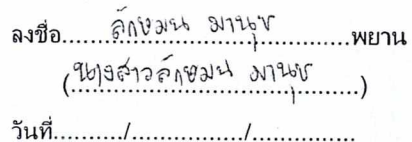 ลงชื่อ.....ลักษมน มานุช.....พยาน
(นางสาวลักษมน มานุช)
วันที่........../................/...............